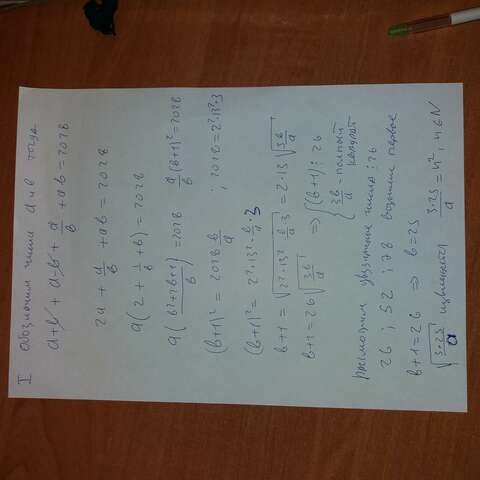 I Обозначим числа a и b тогда
a+b + a-b + a/b + ab = 2028
2a + a/b + ab = 2028
a(2 + 1/b + b) = 2028
a((b²+2b+1)/b) = 2028   a/b (b+1)² = 2028
(b+1)² = 2028 b/a ; 2028 = 2²·13²·3
(b+1)² = 2²·13²· b/a ·3
b+1 = √(2²·13² b/a ·3) = 2·13 √(3b/a)
b+1 = 26 √(3b/a) ⇒ { (b+1)⋮26
3b/a - полный квадрат
рассмотрим двузначные числа ⋮26
26 ; 52 ; 78 возьмем первое
b+1 = 26 ⇒ b = 25
√(3·25/a) извлекается 3·25/a = n², n∈N